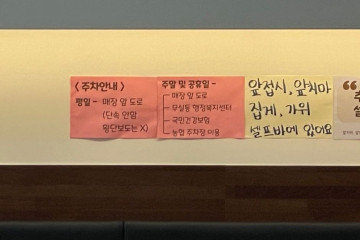 < 주차안내 >
평일 - 매장 앞 도로
(단속 안함
횡단보도는 X)
주말 및 공휴일 -
- 매장 앞 도로
- 무실동 행정복지센터
- 국민건강보험
- 농협 주차장 이용
앞접시, 앞치마
집게, 가위
셀프바에 있어요